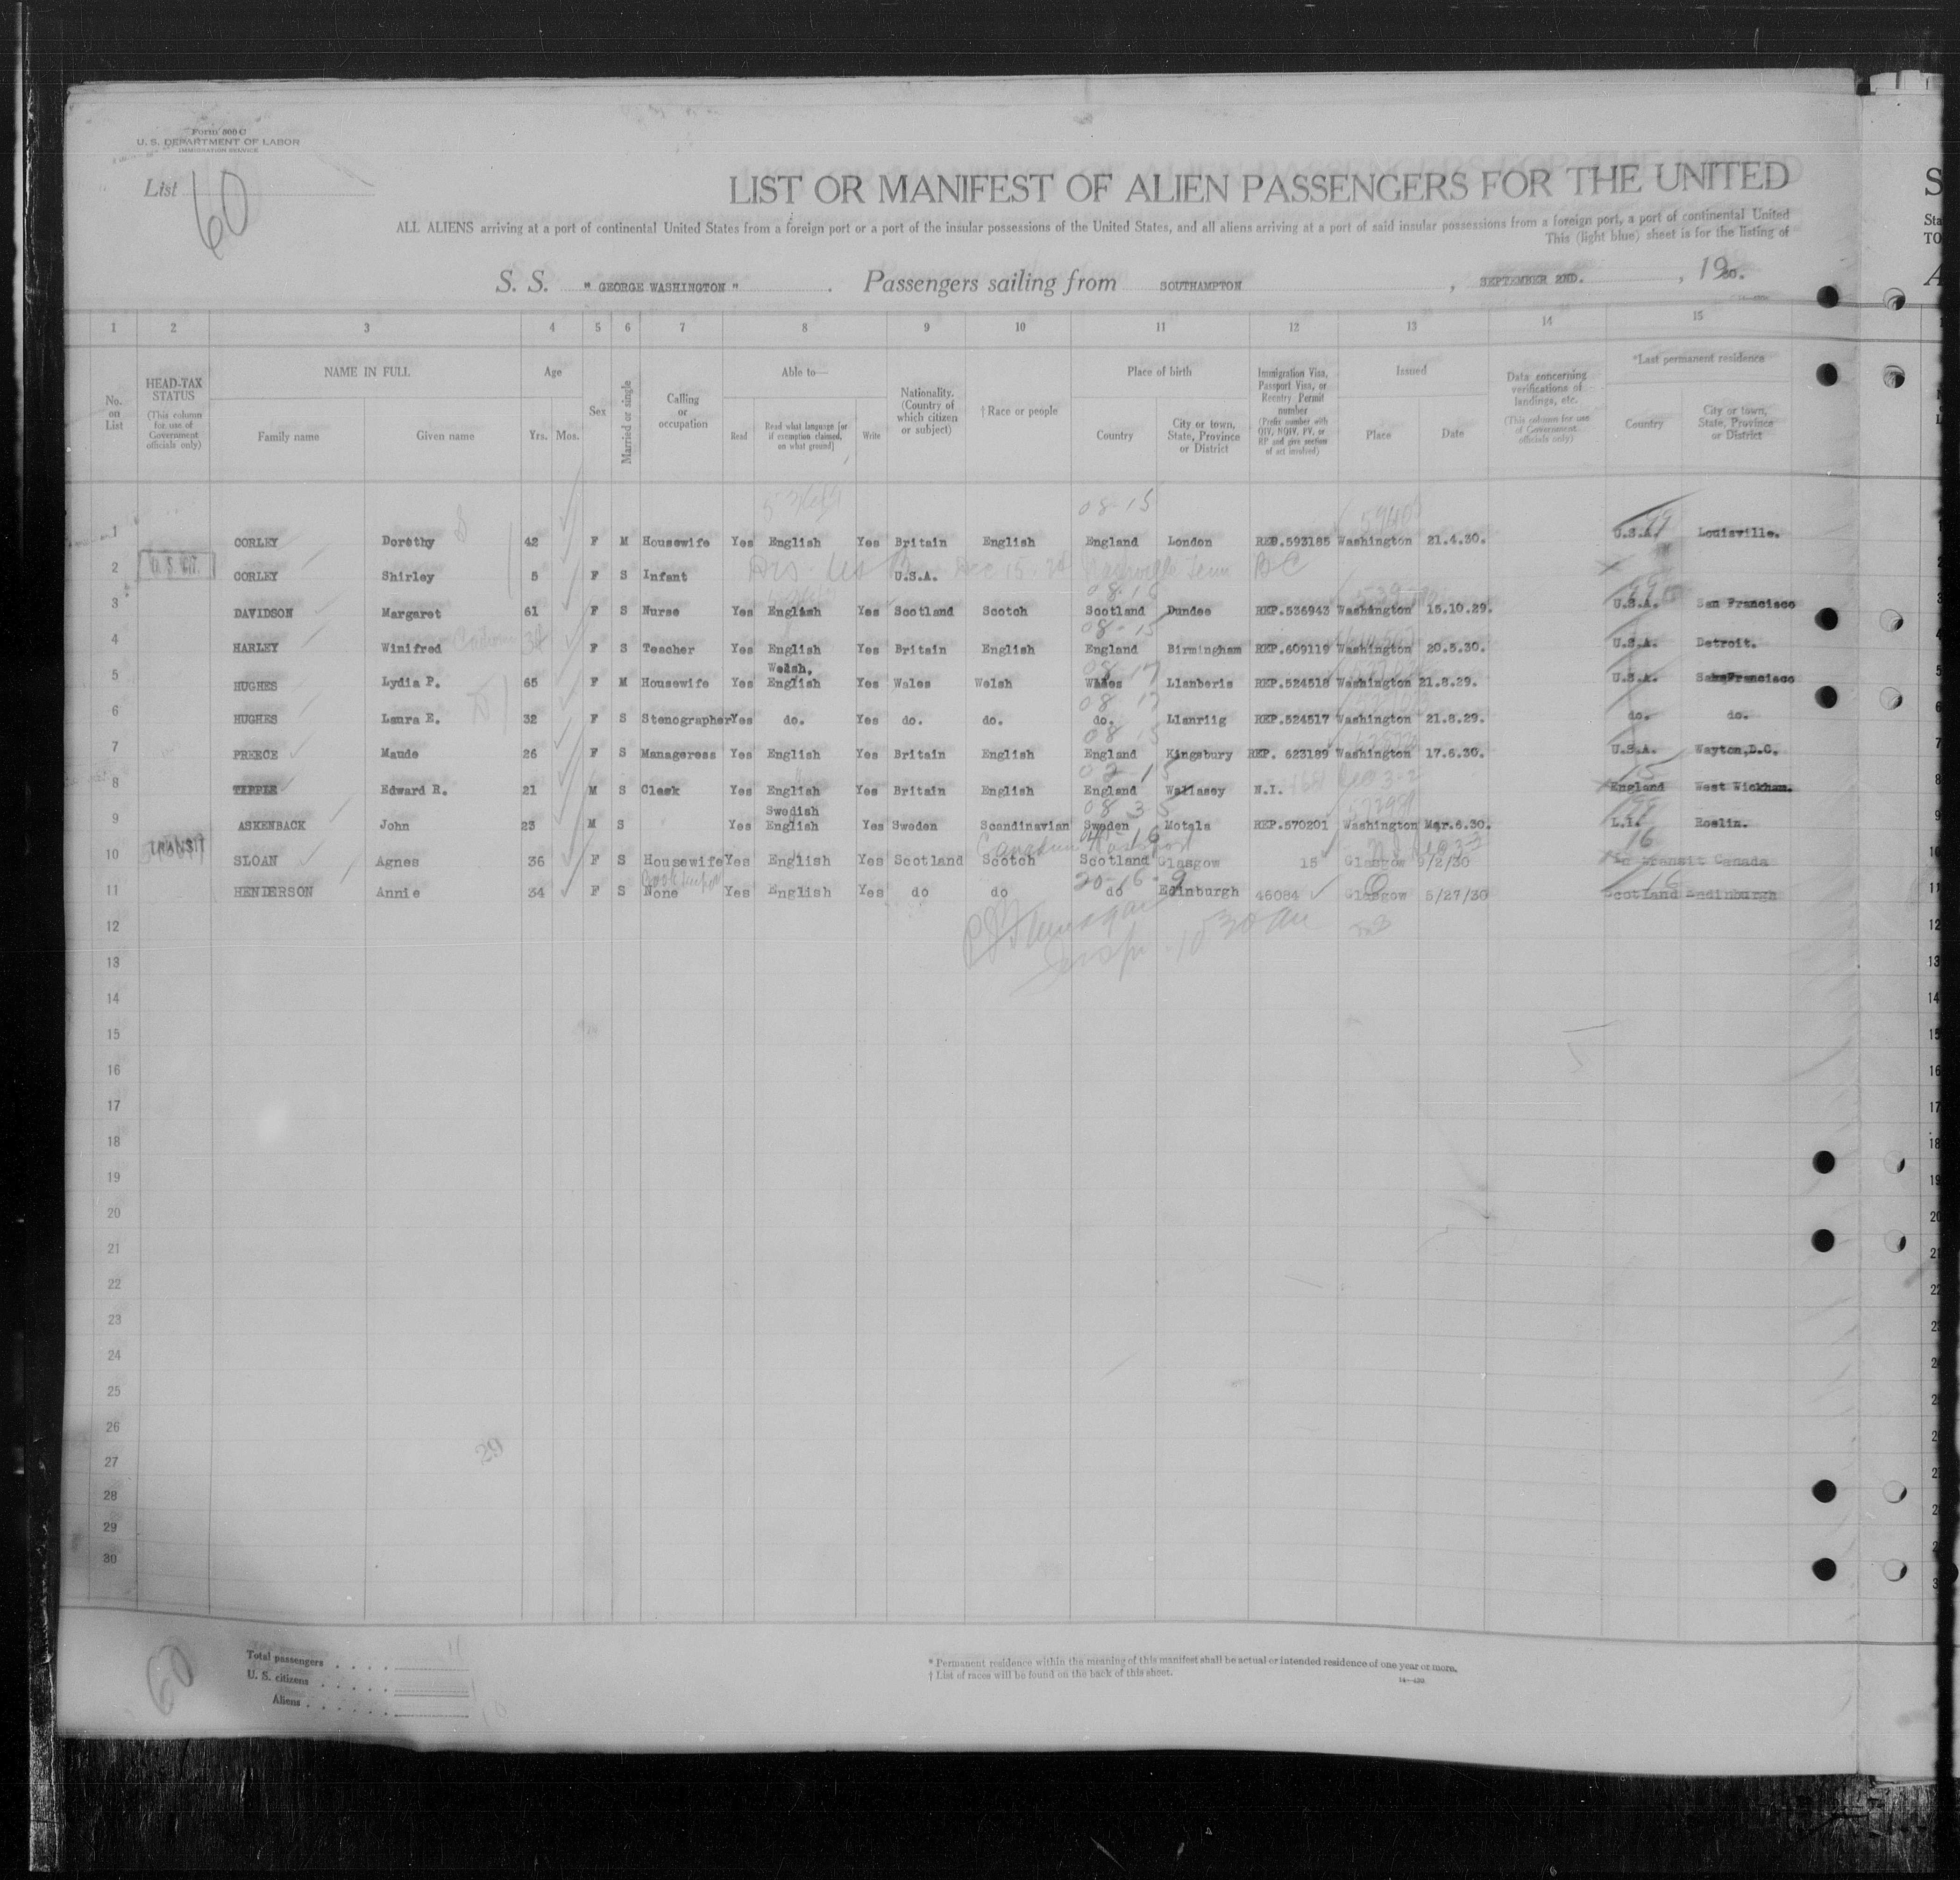 Form 500 C
U. S. DEPARTMENT OF LABOR
IMMIGRATION SERVICE
List 60
LIST OR MANIFEST OF ALIEN PASSENGERS FOR THE UNITED
ALL ALIENS arriving at a port of continental United States from a foreign port or a port of the insular possessions of the United States, and all aliens arriving at a port of said insular possessions from a foreign port, a port of continental United
This (light blue) sheet is for the listing of
S. S. " GEORGE WASHINGTON " . Passengers sailing from SOUTHAMPTON , SEPTEMBER 2ND. , 1930.
1 2 3 4 5 6 7 8 9 10 11 12 13 14 15
No. on List
HEAD-TAX STATUS (This column for use of Government officials only)
NAME IN FULL Family name Given name
Age Yrs. Mos.
Sex
Married or single
Calling or occupation
Able to— Read Read what language [or if exemption claimed, on what ground] Write
Nationality. (Country of which citizen or subject)
† Race or people
Place of birth Country City or town, State, Province or District
Immigration Visa, Passport Visa, or Reentry Permit number (Prefix number with QIV, NQIV, PV, or RP and give section of act involved)
Issued Place Date
Data concerning verifications of landings, etc. (This column for use of Government officials only)
*Last permanent residence Country City or town, State, Province or District
08-15
1 CORLEY Dorothy 42 F M Housewife Yes English Yes Britain English England London REP.593185 Washington 21.4.30. U.S.A. Louisville.
2 CORLEY Shirley 5 F S Infant U.S.A. Dec 15 Nashville Tenn BC
3 DAVIDSON Margaret 61 F S Nurse Yes English Yes Scotland Scotch Scotland Dundee REP.536943 Washington 15.10.29. U.S.A. San Francisco
08-15
4 HARLEY Winifred 34 F S Teacher Yes English Yes Britain English England Birmingham REP.609119 Washington 20.5.30. U.S.A. Detroit.
08 17
5 HUGHES Lydia P. 65 F M Housewife Yes Welsh, English Yes Wales Welsh Wales Llanberis REP.524518 Washington 21.8.29. U.S.A. San Francisco
08 17
6 HUGHES Laura E. 32 F S Stenographer Yes do. Yes do. do. do. Llanriig REP.524517 Washington 21.8.29. do. do.
08 15
7 PREECE Maude 26 F S Manageress Yes English Yes Britain English England Kingsbury REP. 623189 Washington 17.6.30. U.S.A. Wayton,D.C.
8 TIPPLE Edward R. 21 M S Clerk Yes English Yes Britain English England Wallasey N.I. England West Wickham.
08 35
9 ASKENBACK John 23 M S Yes Swedish English Yes Sweden Scandinavian Sweden Motala REP.570201 Washington Mar.6.30. L.I. Roslin.
Canadian Passport
10 TRANSIT SLOAN Agnes 36 F S Housewife Yes English Yes Scotland Scotch Scotland Glasgow 15 Glasgow 9/2/30 In transit Canada
20-16-9
11 HENDERSON Annie 34 F S None Yes English Yes do do do Edinburgh 46084 Glasgow 5/27/30 Scotland Endinburgh
12
13
14
15
16
17
18
19
20
21
22
23
24
25
26
27
28
29
30
29
60
Total passengers . . . . . 11
U. S. citizens . . . . . . 1
Aliens . . . . . . . 10
* Permanent residence within the meaning of this manifest shall be actual or intended residence of one year or more.
† List of races will be found on the back of this sheet.